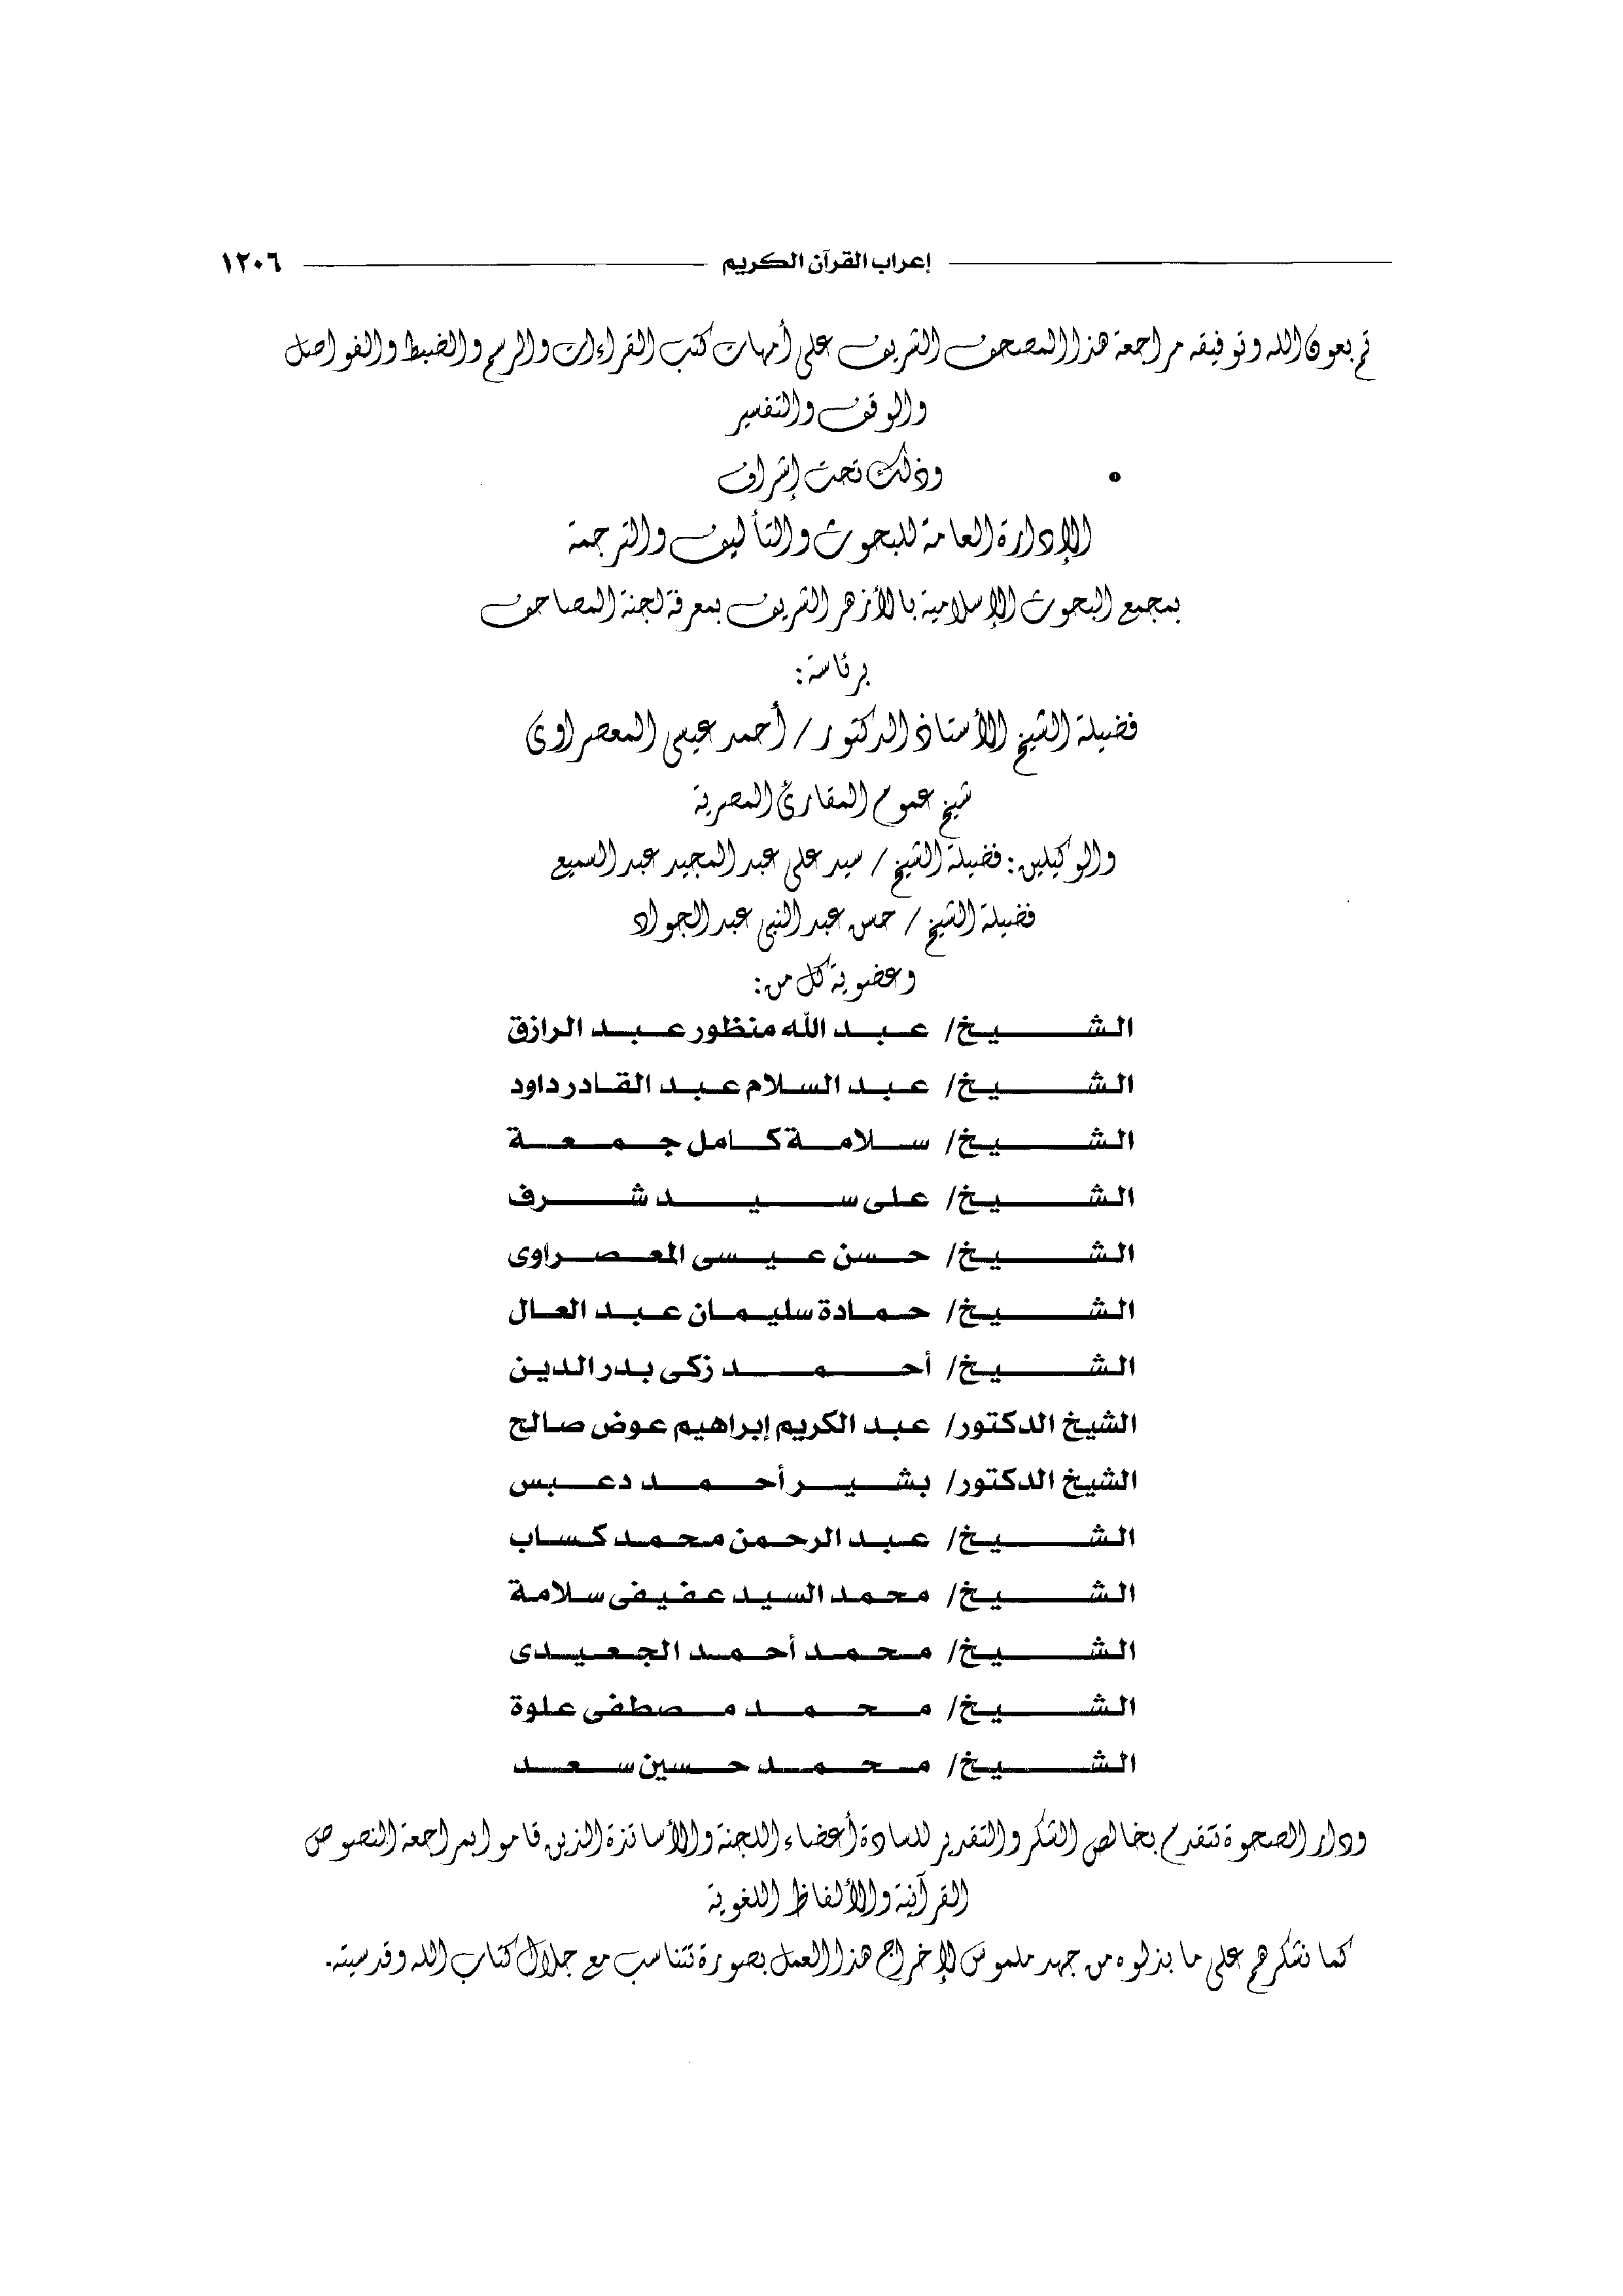 إعراب القرآن الكريم ١٢٠٦
تم بعون الله وتوفيقه مراجعة هذا المصحف الشريف على أمهات كتب القراءات والرسم والضبط والفواصل
والوقف والتفسير
وذلك تحت إشراف
الإدارة العامة للبحوث والتأليف والترجمة
بمجمع البحوث الإسلامية بالأزهر الشريف بمعرفة لجنة المصاحف
برئاسة:
فضيلة الشيخ الأستاذ الدكتور / أحمد عيسى المعصراوى
شيخ عموم المقارئ المصرية
والوكيلين: فضيلة الشيخ / سيد على عبد المجيد عبد السميع
فضيلة الشيخ / حسن عبد النبى عبد الجواد
وعضوية كل من:
الشيخ/ عبد الله منظور عبد الرازق
الشيخ/ عبد السلام عبد القادر داود
الشيخ/ سلامة كامل جمعة
الشيخ/ على سيد شرف
الشيخ/ حسن عيسى المعصراوى
الشيخ/ حمادة سليمان عبد العال
الشيخ/ أحمد زكى بدر الدين
الشيخ الدكتور/ عبد الكريم إبراهيم عوض صالح
الشيخ الدكتور/ بشير أحمد دعبس
الشيخ/ عبد الرحمن محمد كساب
الشيخ/ محمد السيد عفيفى سلامة
الشيخ/ محمد أحمد الجعيدى
الشيخ/ محمد مصطفى علوة
الشيخ/ محمد حسين سعد
ودار الصحوة تتقدم بخالص الشكر والتقدير للسادة أعضاء اللجنة والأساتذة الذين قاموا بمراجعة النصوص
القرآنية والألفاظ اللغوية
كما نشكرهم على ما بذلوه من جهد ملموس لإخراج هذا العمل بصورة تتناسب مع جلال كتاب الله وقدسيته.